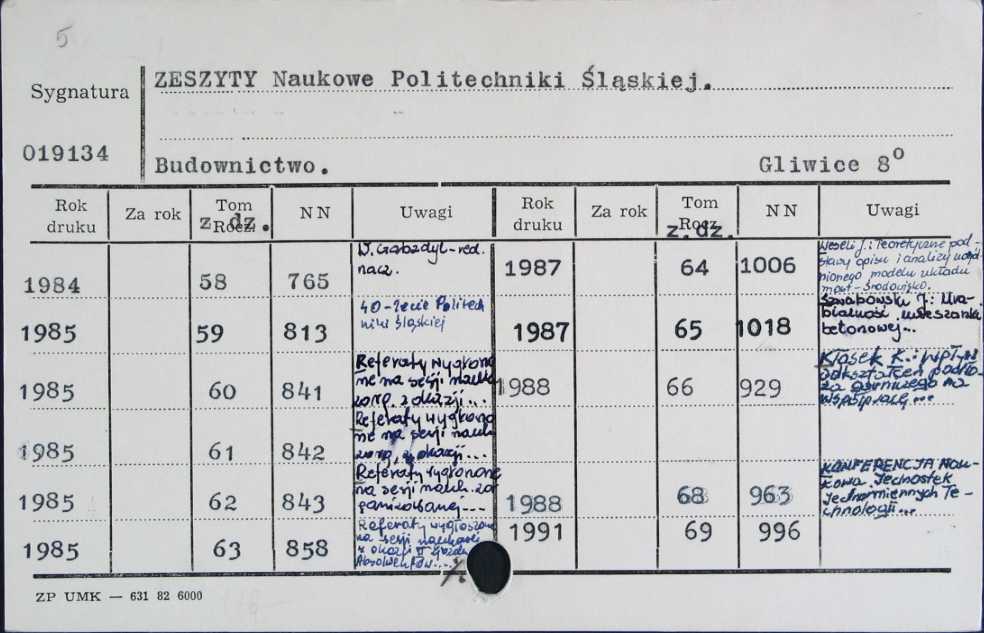 5
Sygnatura
019134
ZESZYTY Naukowe Politechniki Śląskiej.
Budownictwo. Gliwice 8°
Rok druku Za rok Tom Rocz. z. dz. NN Uwagi
1984 58 765 W. Gabzdyl-red. nacz.
1985 59 813 40-lecie Politechniki Śląskiej
1985 60 841 Referaty na sesji zorg. z okazji...
1985 61 842 Referaty na sesji zorg. z okazji...
1985 62 843 Referaty na sesji nauk. zorganizowanej...
1985 63 858 Referaty wygłoszone na sesji naukowej z okazji II Zjazdu Absolwentów...
Rok druku Za rok Tom Rocz. z. dz. NN Uwagi
1987 64 1006 Weseli J.: Teoretyczne podstawy opisu i analizy modelu układu most-środowisko.
1987 65 1018 Szwabowski J.: Urabialność mieszanki betonowej...
1988 66 929 Kłosek K.: Wpływ odkształceń podłoża górniczego na współpracę...
1988 68 963 KONFERENCJA Naukowa Jednostek Technologii...
1991 69 996
ZP UMK — 631 82 6000